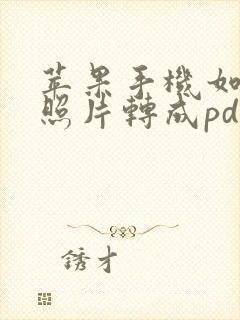 苹果手機如
照片轉成pd
銹才